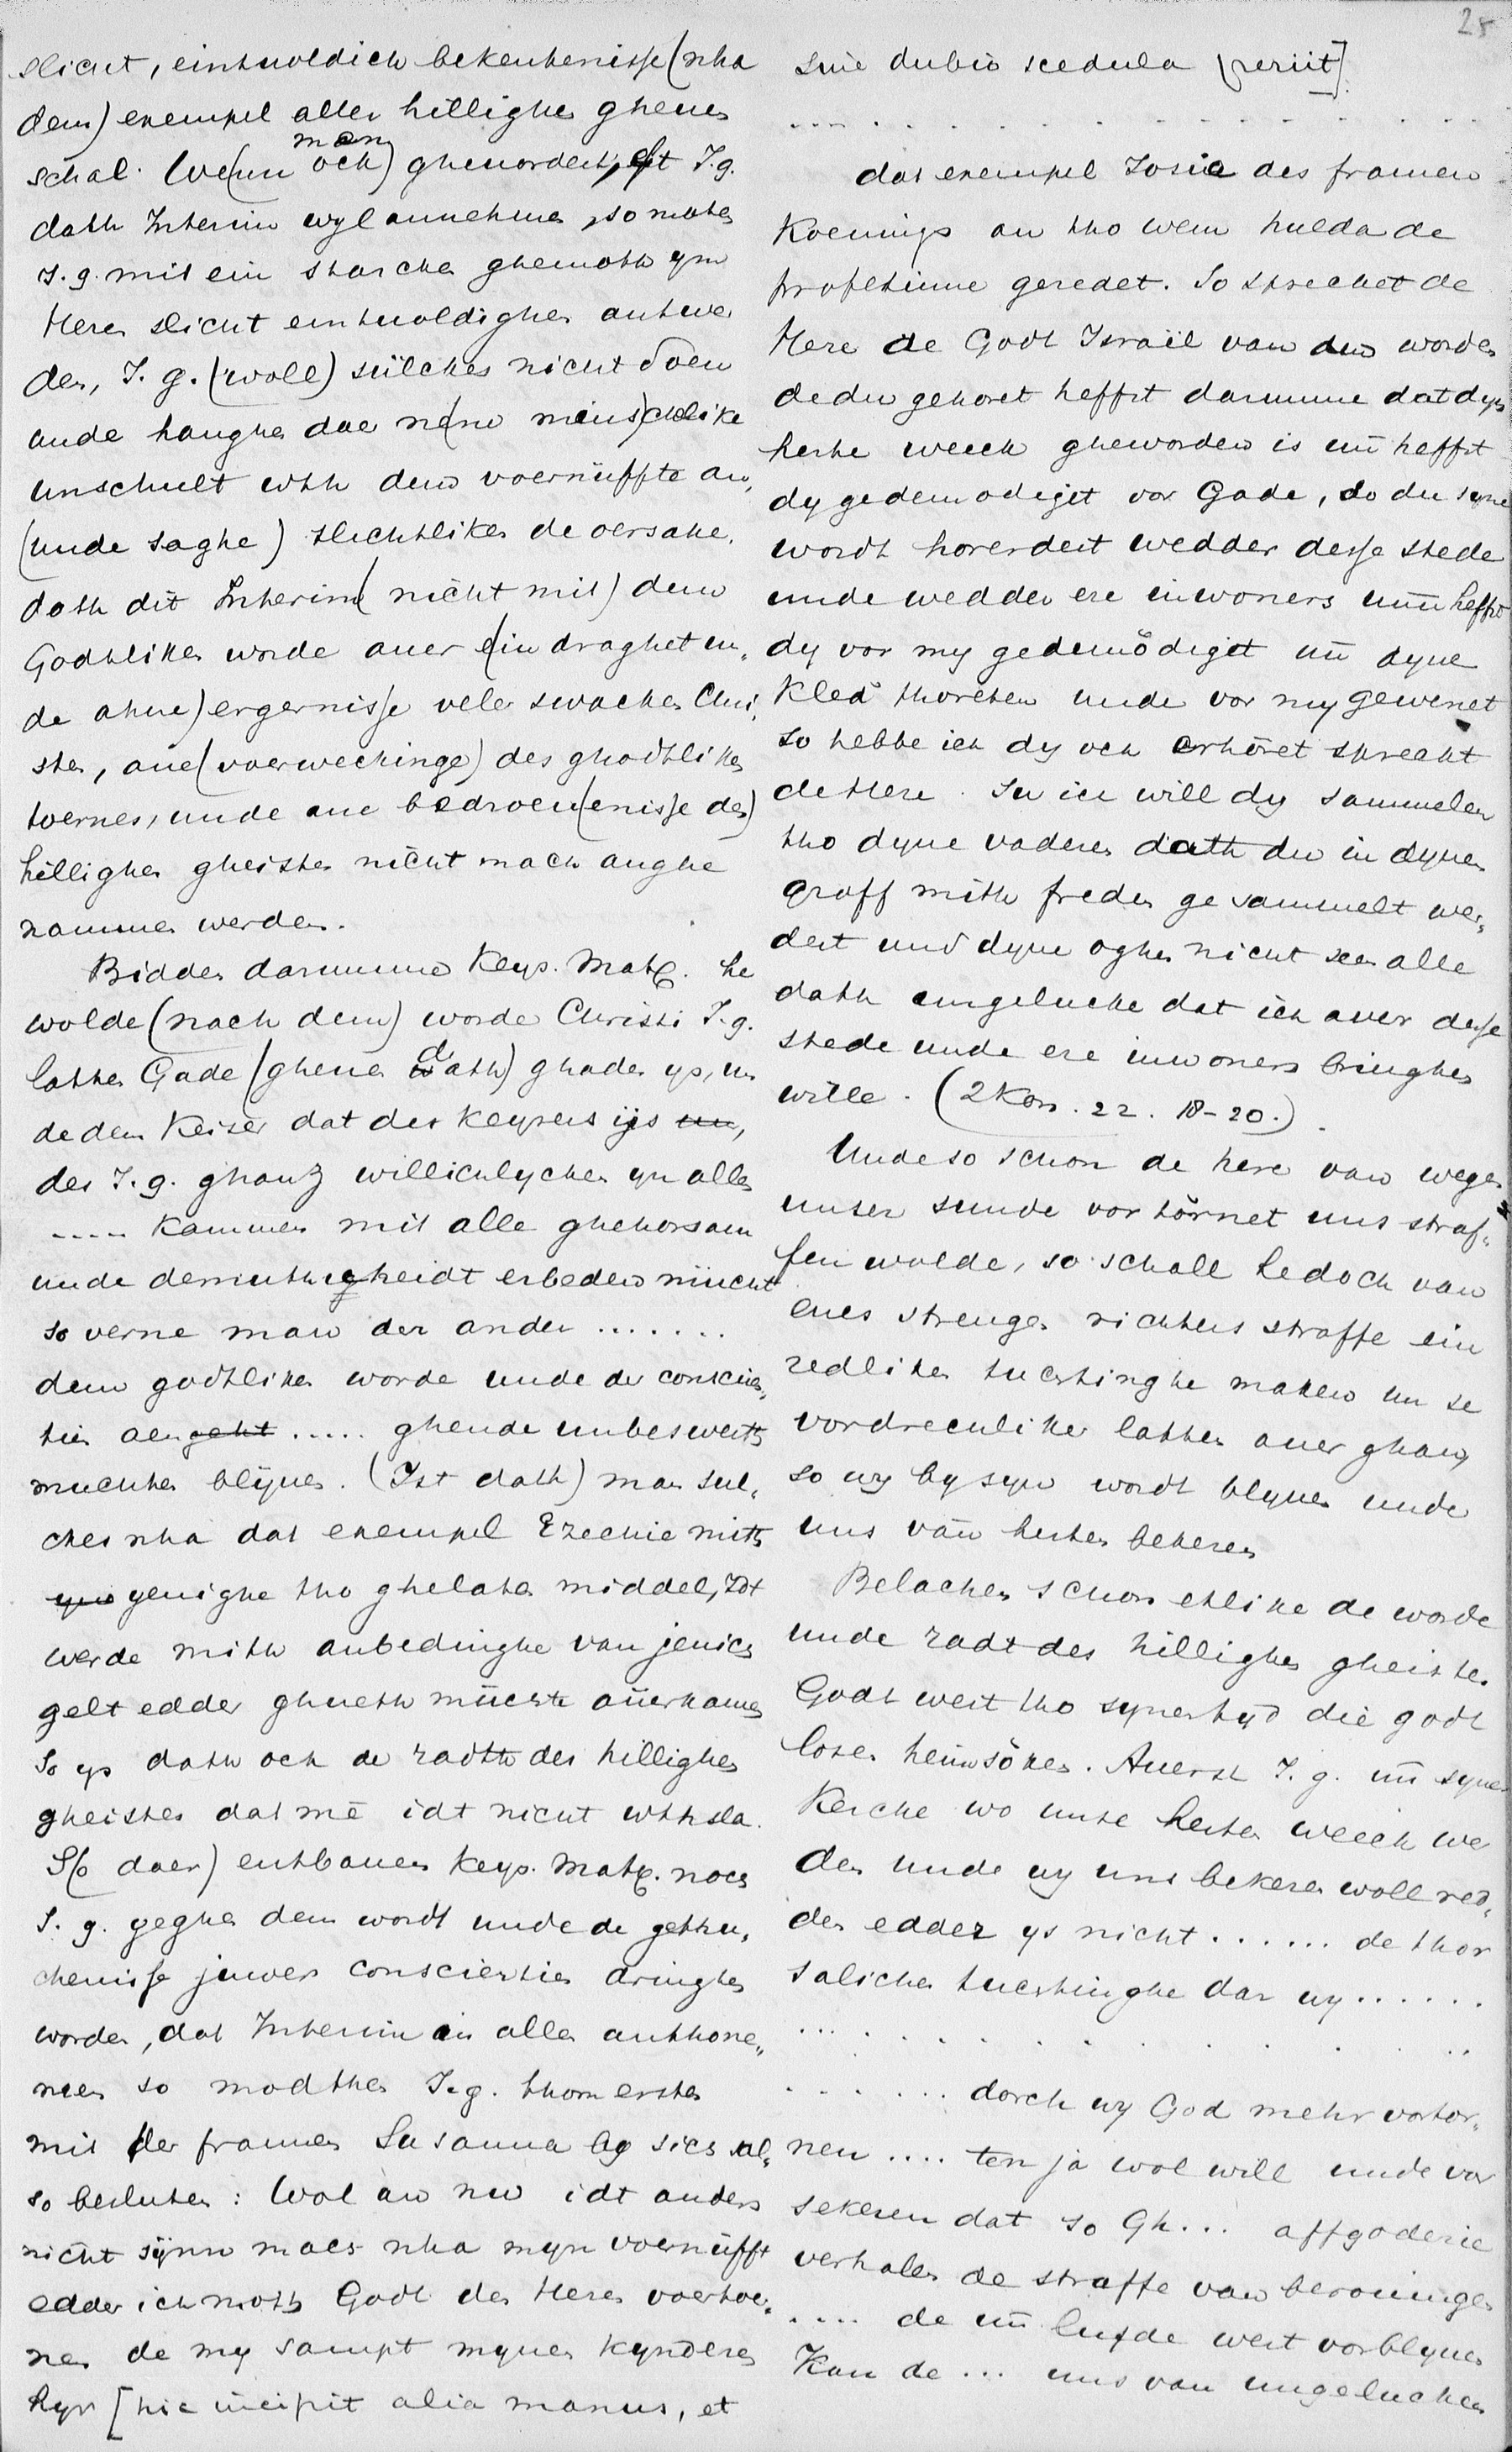 25
slicht, eintuoldich bekentenisse (nha
dem) exempel aller hillighen ghenen
schal. We(nn man och) ghenordert, eft I.g.
dath Interim wyl annehmen, so moten
I.g. mit ein starcken ghemoth ym
Heren slicht eintuoldighen antwer
den, I.g. (woll) sülches nicht doen
unde hanghe dae ne(ne mins)chlike
unschult wth dem voernüffte an,
(unde saghe) slichtliken de oersake,
dath dit Interim (nicht mit) dem
Godtliken worde auer e(in draghet un,
de ahne) ergernisse veler swacken Chri,
sten, ane (voerweckinge) des ghodtliken
toernes, unde ane bedroeu(enisse des)
hillighen gheistes nicht mach anghe
nommen werden.
Bidden darumme Keys. Matg. he
wolde (nach dem) worde Christi I.g.
laten Gade (ghenen dath) ghades ys, un
de dem Keiser dat des keysers ijs
des I.g. ghanz willichlychen yn allen
..... kammen mit alle ghehorsam
unde demuthigheidt erbeden müchte
so verne man der ander .......
dem godtliken worde unde de conscien,
tien aengeht ..... ghende unbeswert
muchten blÿuen. (Ist dath) man sul,
ches nha dat exempel Ezechie mith
yenighe tho ghelaten middel, Idt
werde mith anbedinghe van jenich
gelt edder ghueth müchte auerkamen
So ys dath och de radth des hillighen
gheistes dat mē idt nicht wthsla.
S(o daer) entbauen Keys. Matg. noch
I.g. yeghen dem wordt unde de gethu,
chenisse juwer conscientien dringhen
worden, dat Interim in allen anthone,
men so modthen I.g. thom ersten
mit der framen Susanna by sich al,
so besluten: Wol an nu idt anders
nicht sÿnn mach nha myn voernüfft
edder ich moth Godt den Heren voertoe,
nen de my sampt mynen kynderen
hyr [hic incipit alia manus, et
sine dubio scedula periit].
....................
dat exempel Josie des framen
Koenings an tho wem hulda de
profetinne geredet. So sprecket de
Here de Godt Israël van den worden
de du gehoret heffst darumme dat dyn
herte weeck gheworden is un̄ heffst
dy gedemodiget vor Gade, do du syne
wordt horendest wedder desse stede
unde wedder ere inwoners unn̄ heffst
dy vor my gedemödiget un̄ dyne
Kled thoreten unde vor my gewenet
so hebbe ick dy och erhöret spreckt
de Here. Su ick will dy sammelen
tho dyne vaderen dath du in dynen
graff mith freden gesammelt wer,
dest und dyne oghen nicht seen alle
dath ungelucke dat ick aver desse
stede unde ere inwoners bringhen
wille. (2 Kon. 22. 18-20.).
Unde so schon de here van wegen
unser sunde vortörnet uns straf,
fen wolde, so schall he doch van
enes strengen richters straffe ein
redliken tuchtinghe maken un se
vordrechliken latten auer ghan,
so wy by syn wordt blyuen unde
uns van herten bekeren
Belachen schon etlike de worde
unde radt des hillighen gheistes
Godt weit tho syner tyd die godt
losen heimsöken. Auerst I.g. un̄ syne
Kercke wo unse herten weeck we
den unde wy uns bekeren woll red,
den edder ys nicht ...... de thor
salichen tuchtinghe dar wy ......
....................
....... dorch wy God mehr vortor,
nen .... ten ja wol will unde vor
sekeren dat so Gh... affgoderie
verhalen de straffe van berouinge
.... de un̄ lugde wert vorblyuen
Kan de ... uns van ungelucken